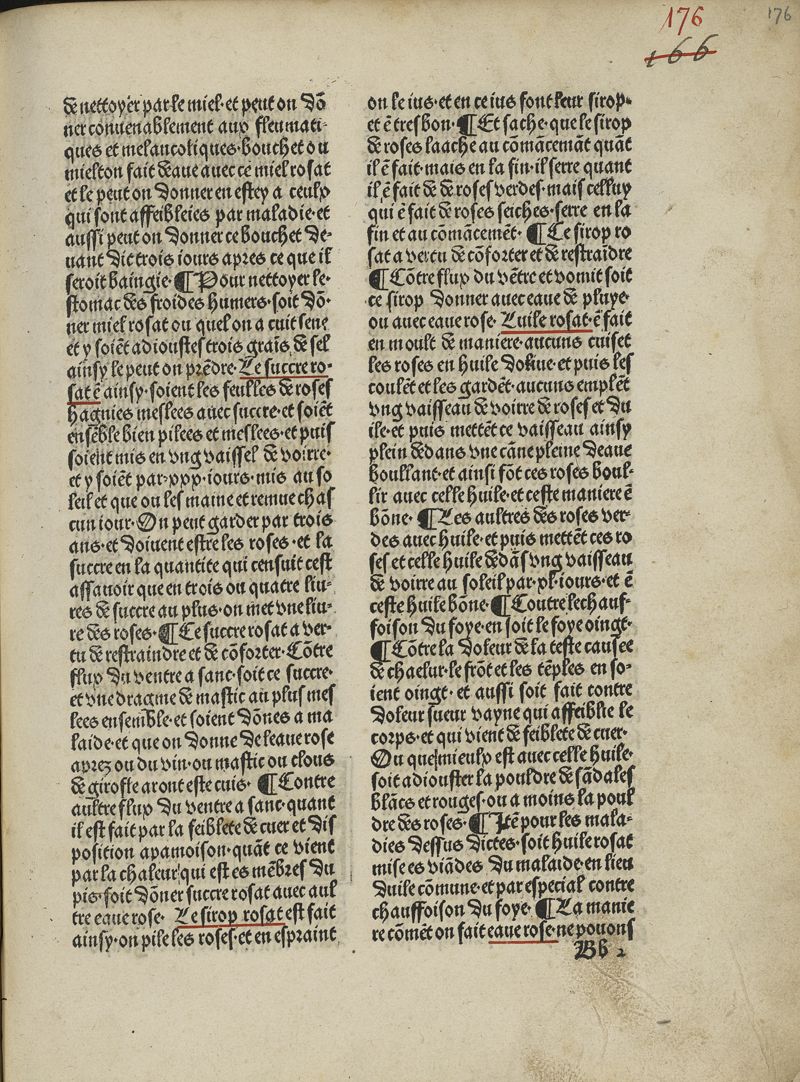 176
176
166
de nettoyer par le miel·et peut on dõ
ner conuenablement aux fleumati-
ques et melancoliques·bouchet ou
mielton fait deaue auec ce miel rosat
et le peut on donner en estey a ceulx
qui sont affeibleies par maladie·et
aussi peut on donner ce bouchet de-
uant dic trois iours apres ce que il
seroit baingie·¶Pour nettoyer le-
stomac des froides humers·soit dõ-
ner miel rosat ou quel on a cuit sene
et y soiẽt adioustes trois grais de sel
ainsy le peut on prẽdre·Le succre ro-
sat ẽ ainsy·soient les feulles de roses
hagnies meslees auec succre·et soiẽt
ensẽble bien pilees et meslees·et puis
soient mis en vng vaissel de voirre·
et y soiẽt par·xxx·iours·mis au so
leil et que ou les maine et remue chas
cun iour·On peut garder par trois
ans·et doiuent estre les roses·et la
succre en la quantite qui censuit cest
assauoir que en trois ou quatre liu-
res de succre au plus·on met vne liu-
re des roses·¶Ce succre rosat a ver-
tu de restraindre et de cõforter·Cõtre
flux du ventre a sanc·soit ce succre·
et vne dragme de mastic au plus mes
lees ensemble·et soient dõnes a ma
laide·et que on donne de leaue rose
aprez ou du vin·ou mastic ou clous
de giroffe aront este cuis·¶Contre
aultre flux du ventre a sanc·quant
il est fait par la feiblete de cuer et dis
position apamoison·quãt ce vient
par la chaleur qui est es mẽbres du
pis·soit dõner succre rosat auec aul
tre eaue rose·Le sirop rosat est fait
ainsy·on pile les roses·et en espraint
on le ius·et en ce ius font leur sirop·
et ẽ tres bon·¶Et sache·que le sirop
de roses laache au cõmãcemãt quãt
il ẽ fait·mais en la fin·il serre quant
il ẽ fait de de roses verdes·mais celluy
qui ẽ fait de roses seiches·serre en la
fin et au cõmãcemẽt·¶Ce sirop ro
sat a vertu de cõforter et de restraidre
¶Cõtre flux du vẽtre et vomit soit
ce sirop donner auec eaue de pluye·
ou auec eaue rose·Luile rosat·ẽ fait
en moult de maniere·aucuns cuiset
les roses en huile doliue·et puis les
coulẽt et les gardẽt·aucuns emplẽt
vng vaisseau de voirre de roses et du
ile·et puis mettẽt ce vaisseau ainsy
plein dedans vne cãne pleine deaue
boullant·et ainsi fõt ces roses boul-
lir auec celle huile·et ceste maniere ẽ
bõne·¶Les aultres des roses ver-
des auec huile·et puis mettẽt ces ro
ses et celle huile dedãs vng vaisseau
de voirre au soleil par·xl·iours·et ẽ
ceste huile bõne·¶Contre lechauf-
foison du foye·en soit le foye oingt·
¶Cõtre la doleur de la teste causee
de chaelur·le frõt et les tẽples en so-
ient oingt·et aussi soit fait contre
doleur sueur vayne qui affeiblie le
corps·et qui vient de feiblete de cuer·
Ou que mieulx est auec celle huile·
soit adiouster la pouldre de sãdales
blãcs et rouges·ou a moins la poul
dre des roses·¶Itẽ pour les mala-
dies dessus dictes·soit huile rosat
mise es viãdes du malaide·en lieu
duile cõmune·et par especial contre
chauffoison du foye·¶La manie
re cõmẽt on fait eaue rose·ne pouons
Bb 2